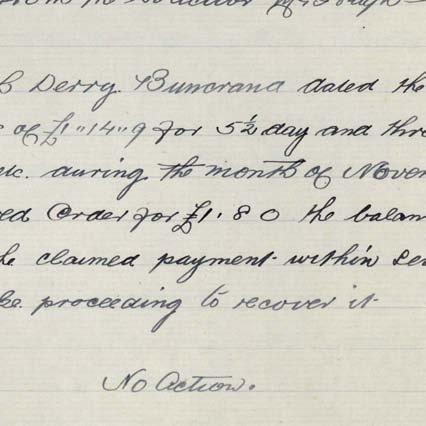 Derry. Buncrana dated the
of £1"14"9 for 5½ day and
during the month of
Order for £1.8 0 the
claimed payment within
proceeding to recover it
No action.